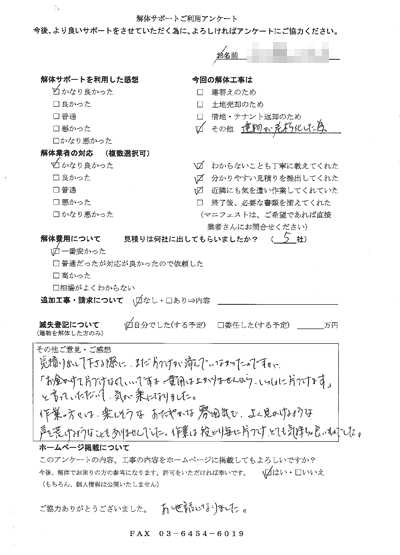 解体サポートご利用アンケート
今後、より良いサポートをさせていただく為に、よろしければアンケートにご協力ください。
お名前
解体サポートを利用した感想
☑かなり良かった
□良かった
□普通
□悪かった
□かなり悪かった
今回の解体工事は
□ 建替えのため
□ 土地売却のため
□ 借地・テナント返却のため
☑ その他 建物が老朽化した為
解体業者の対応 (複数選択可)
☑かなり良かった
□良かった
□普通
□悪かった
□かなり悪かった
☑ わからないことも丁寧に教えてくれた
☑ 分かりやすい見積りを提出してくれた
☑ 近隣にも気を遣い作業してくれていた
□ 終了後、必要な書類を揃えてくれた
(マニフェストは、ご希望であれば直接
業者さんにお問合せください)
解体費用について 見積りは何社に出してもらいましたか？ ( 5 社)
☑一番安かった
□普通だったが対応が良かったので依頼した
□高かった
□相場がよくわからない
追加工事・請求について ☑なし・□あり⇒内容
滅失登記について ☑自分でした(する予定) □委任した(する予定) 万円
(建物を解体した方のみ)
その他ご意見・ご感想
見積り出して下さる際に、まだ片づけが済んでいなかったのですが、
と言っていただいて、気が楽になりました。
作業の方々は、楽しそうな おだやかな 雰囲気で、よく見かけるような
声を荒げるようなこともありませんでした。作業は 片づけ とても気持ちの良いものでした。
ホームページ掲載について
このアンケートの内容、工事の内容をホームページに掲載してもよろしいですか？
今後、解体でお困りの方の参考になります。許可をいただければ幸いです。 ☑はい・□いいえ
(もちろん、個人情報は公開いたしません)
ご協力ありがとうございました。 お世話になりました。
FAX 03-6454-6019